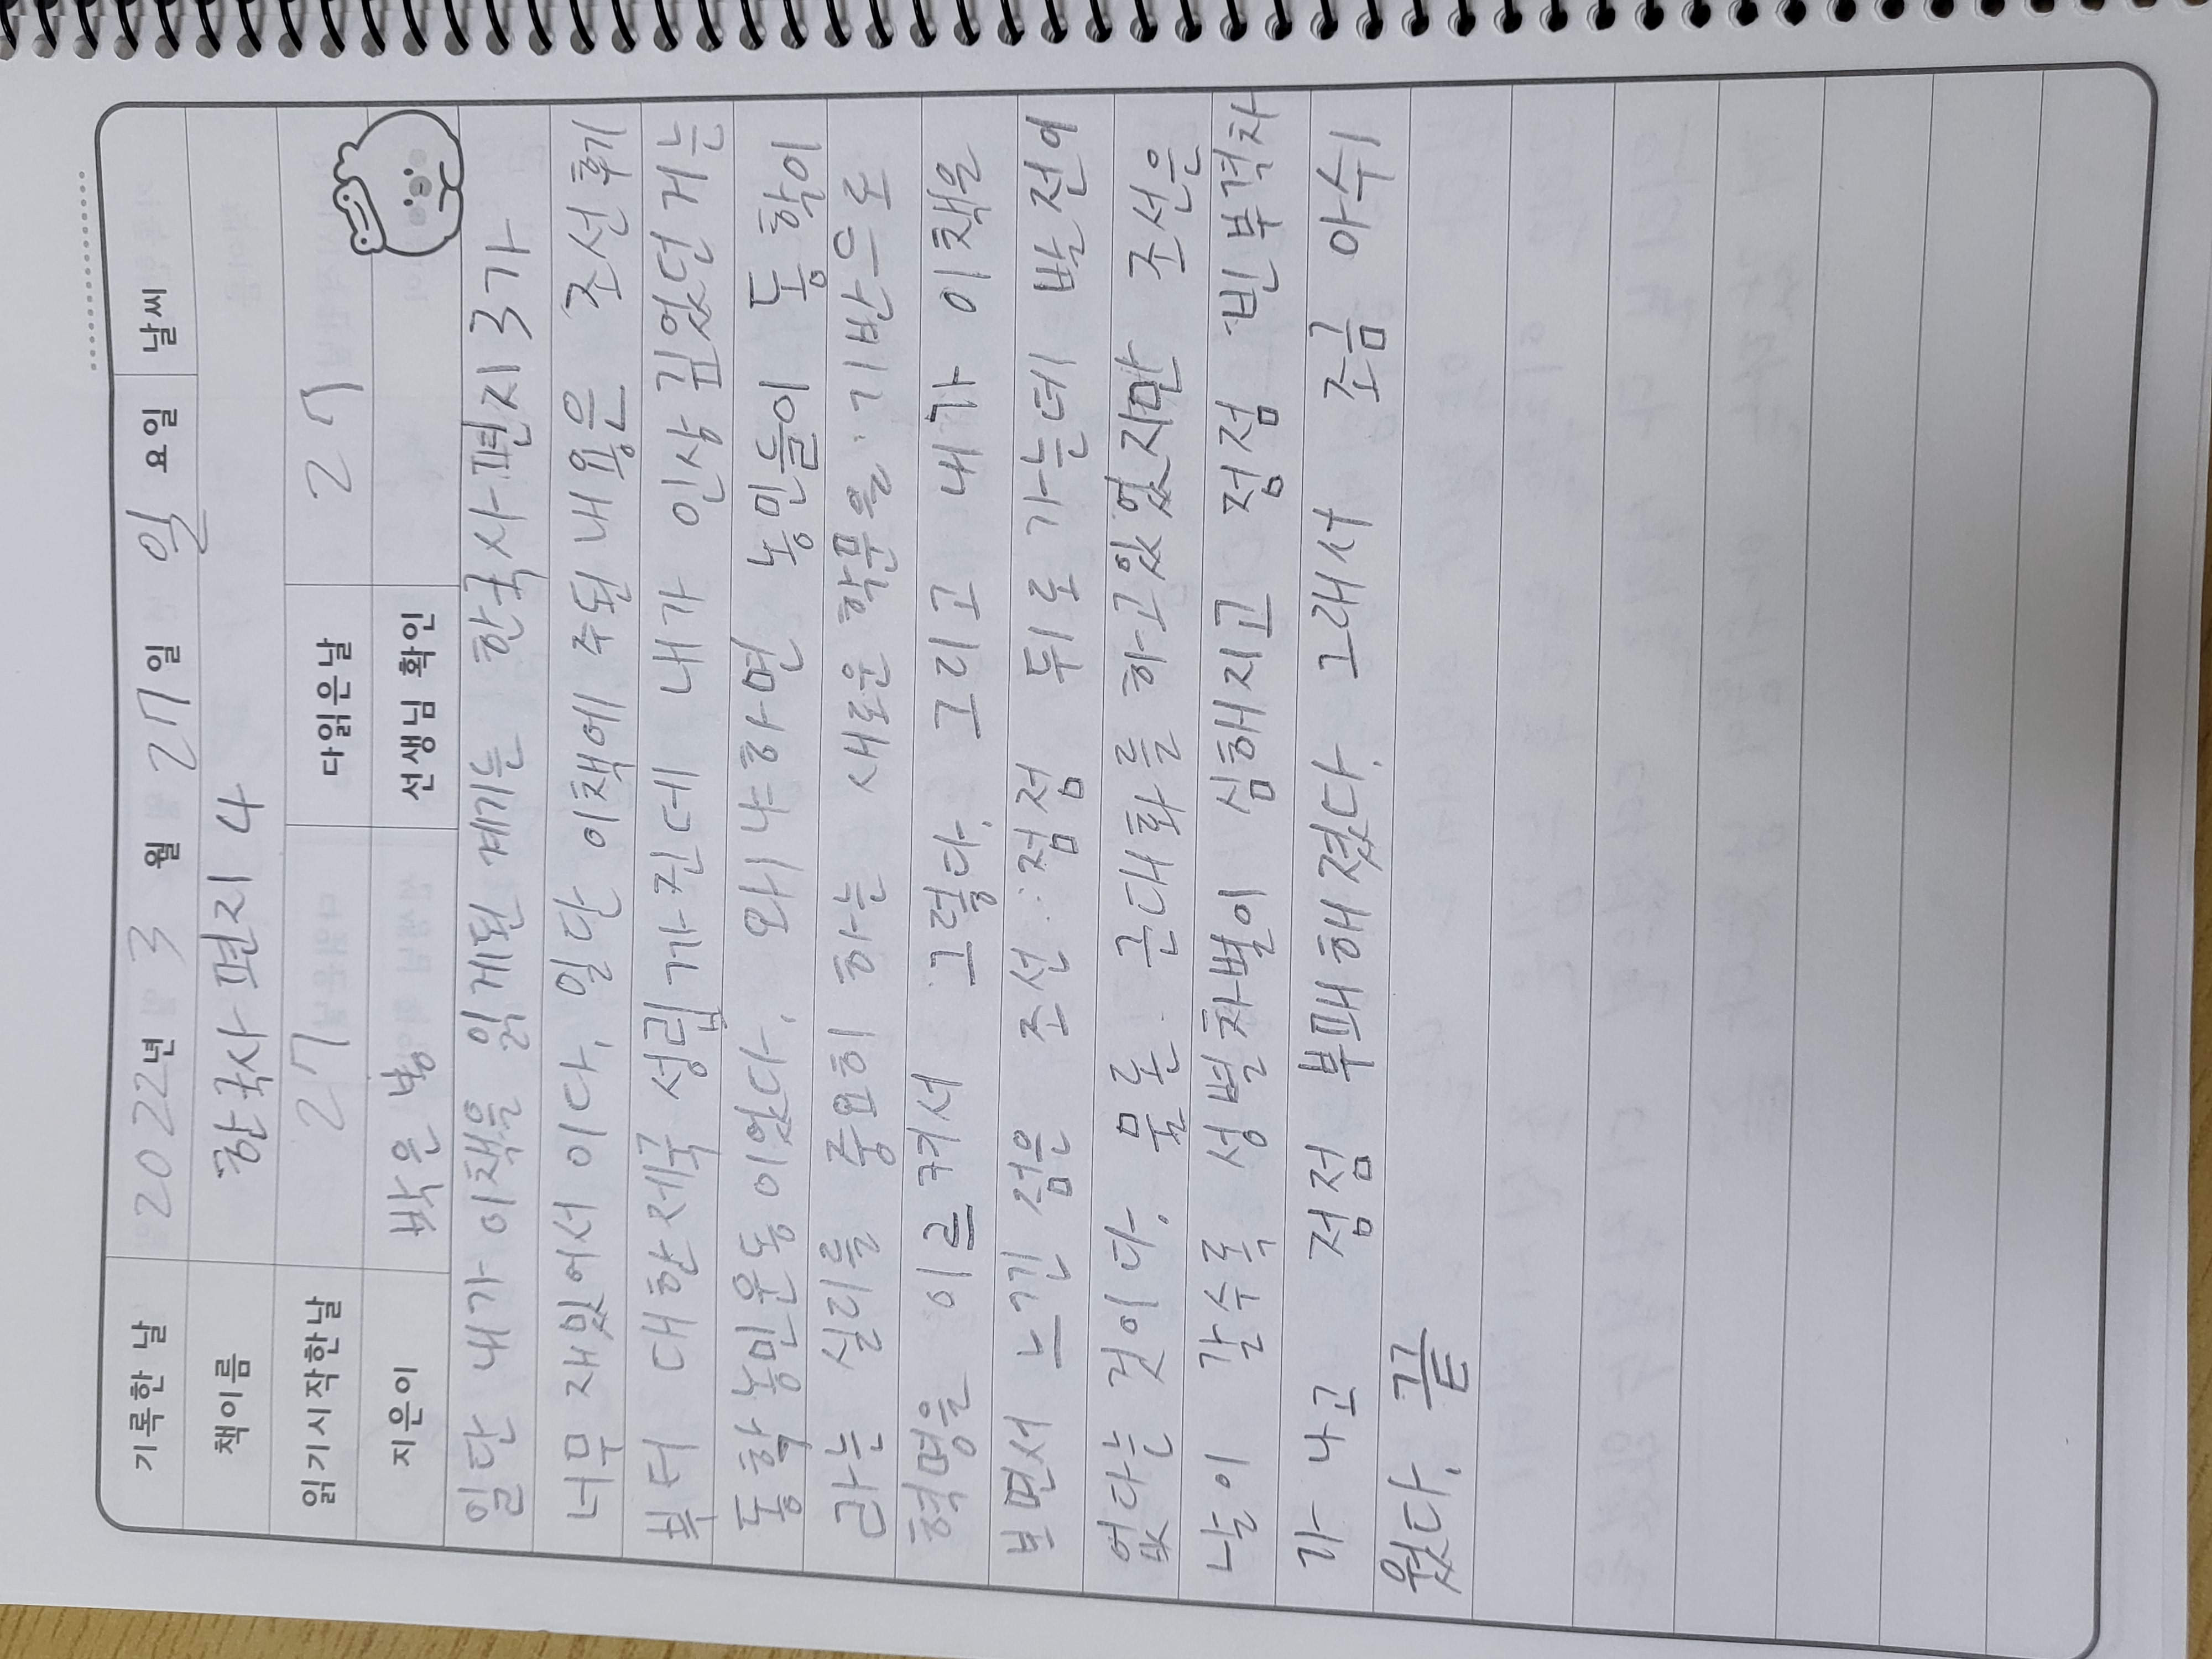 기록한 날 2022년 3 월 27일 일 요일 날씨
책이름 한국사 편지 4
읽기시작한날 27 다읽은날 27
지은이 박은봉 선생님 확인
일단 내가 이책을 읽게된 계기는 한국사 편지 3가
너무 재밌어서 이다. 일단 이책에 주된 내용은 조선 후기
부터 대한제국 성립 까진데 내가 인상 깊었던 거는
동학 농민운동 이었다. 왜냐하면 농민들이 동학이
라는 실리를 중요히 하는 새로운 학문을 기반으로
혁명을 이르켜서 그렇다. 그리고 내가 이책은
보면서 느낀 점은 조선 점점 뒤로 가는데 발전이
없다는 것이다. 물론 근대화를 하고있었지만 조선은
날이 갈수록 성별차별이 심해지고 점점 빈부격차
가 나고 점점 부패해졌다. 그래서 조금 아쉬
웠다. 끝